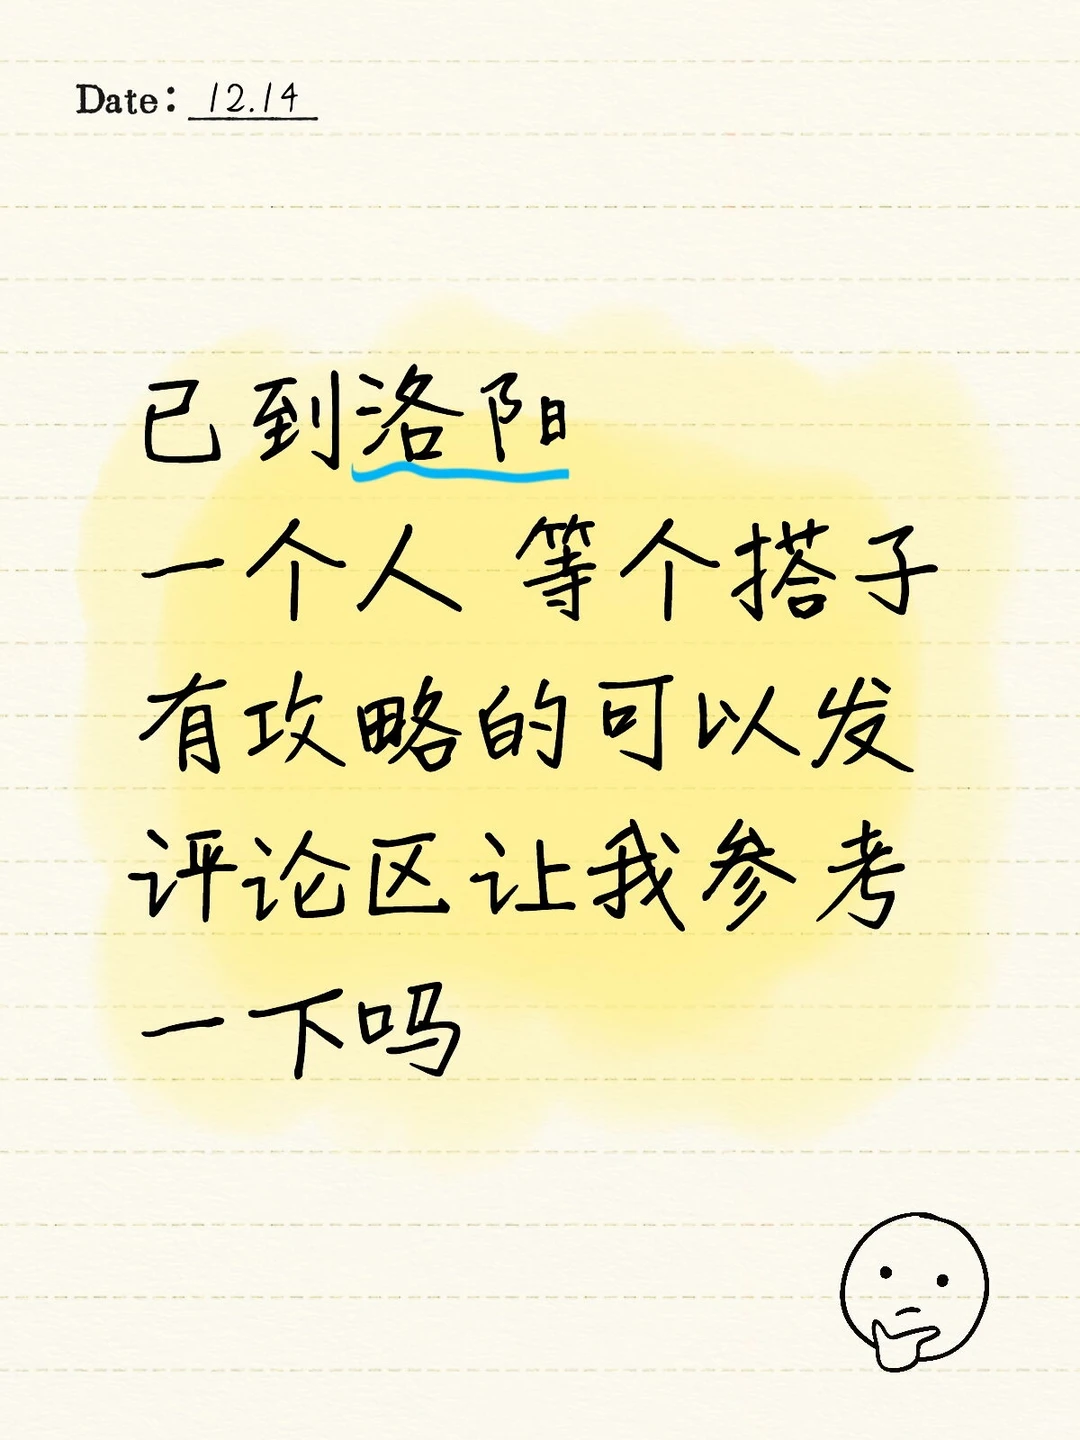 Date: 12.14
已到洛阳
一个人 等个搭子
有攻略的可以发
评论区让我参考
一下吗